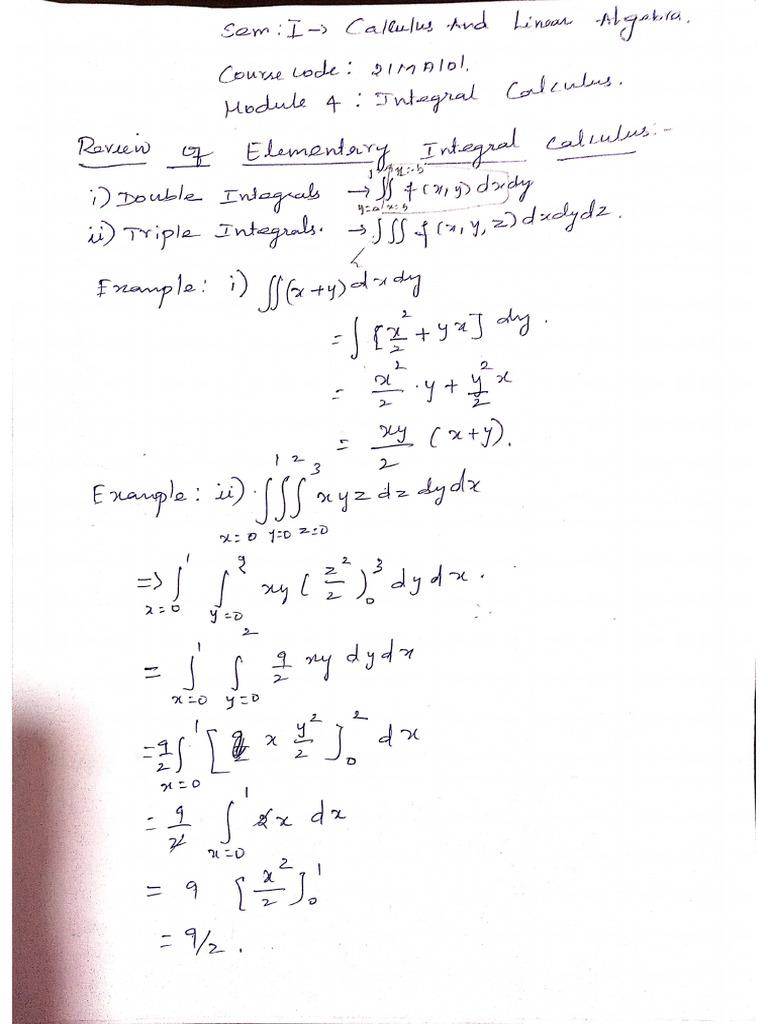 Sem : I → Calculus And Linear Algebra.
Course code : 21MA101.
Module 4 : Integral Calculus.
Review of Elementary Integral calculus :-
i) Double Integrals → ∬ f(x,y) dxdy
ii) Triple Integrals. → ∭ f(x,y,z) dxdydz.
Example : i) ∬(x+y) dxdy
= ∫ [x²/2 + yx] dy.
= x²/2 · y + y²/2 x
= xy/2 (x+y).
Example : ii) ∫_{x=0}^{1} ∫_{y=0}^{2} ∫_{z=0}^{3} xyz dz dy dx
=> ∫_{x=0}^{1} ∫_{y=0}^{2} xy (z²/2)_0^3 dy dx.
= ∫_{x=0}^{1} ∫_{y=0}^{2} 9/2 xy dy dx
= 9/2 ∫_{x=0}^{1} [x y²/2]_0^2 dx
= 9/2 ∫_{x=0}^{1} 2x dx
= 9 [x²/2]_0^1
= 9/2.